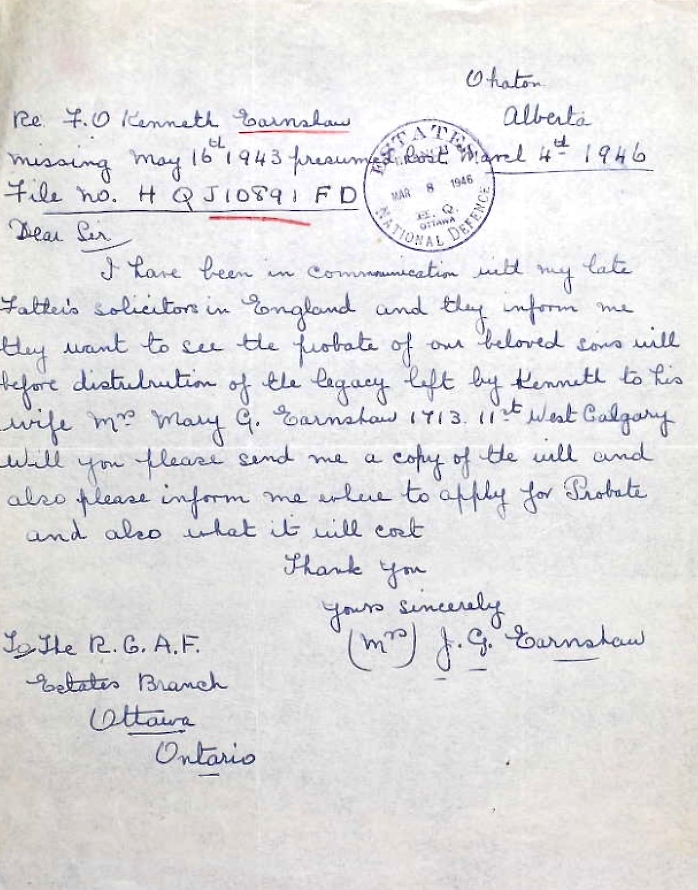 Ohaton
Alberta
Re F.O Kenneth Earnshaw
missing May 16th 1943 presumed lost March 4th 1946
File no. H Q J10891 F D
ESTATES BRANCH
MAR 8 1946
H. Q.
OTTAWA
NATIONAL DEFENCE
Dear Sir
I have been in communication with my late
Father's solicitors in England and they inform me
they want to see the probate of our beloved sons will
before distribution of the legacy left by Kenneth to his
wife Mrs Mary G. Earnshaw 1713. 11st West Calgary
Will you please send me a copy of the will and
also please inform me where to apply for Probate
and also what it will cost
Thank you
yours sincerely
(Mrs) J. G. Earnshaw
To The R.C.A.F.
Estates Branch
Ottawa
Ontario